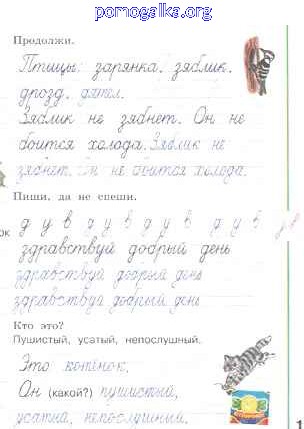 pomogalka.org
Продолжи.
Птицы: зарянка, зяблик,
дрозд, дятел.
Зяблик не зябнет. Он не
боится холода. Зяблик не
зябнет. Он не боится холода.
Пиши, да не спеши.
д у в д у в д у в д у в д
здравствуй добрый день
здравствуй добрый день
здравствуй добрый день
Кто это?
Пушистый, усатый, непослушный.
Это котёнок.
Он (какой?) пушистый,
усатый, непослушный.
1